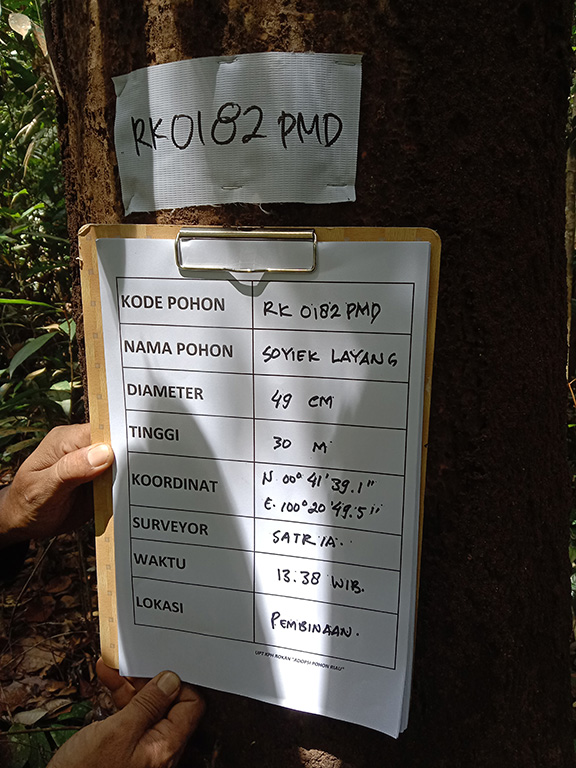 RK0182 PMD
KODE POHON RK 0182 PMD
NAMA POHON SOYIEK LAYANG
DIAMETER 49 CM
TINGGI 30 M
KOORDINAT N 00° 41' 39.1"
E. 100° 20' 49.5"
SURVEYOR SATRIA.
WAKTU 13.38 WIB.
LOKASI PEMBINAAN.
UPT KPH ROKAN "ADOPSI POHON RIAU"